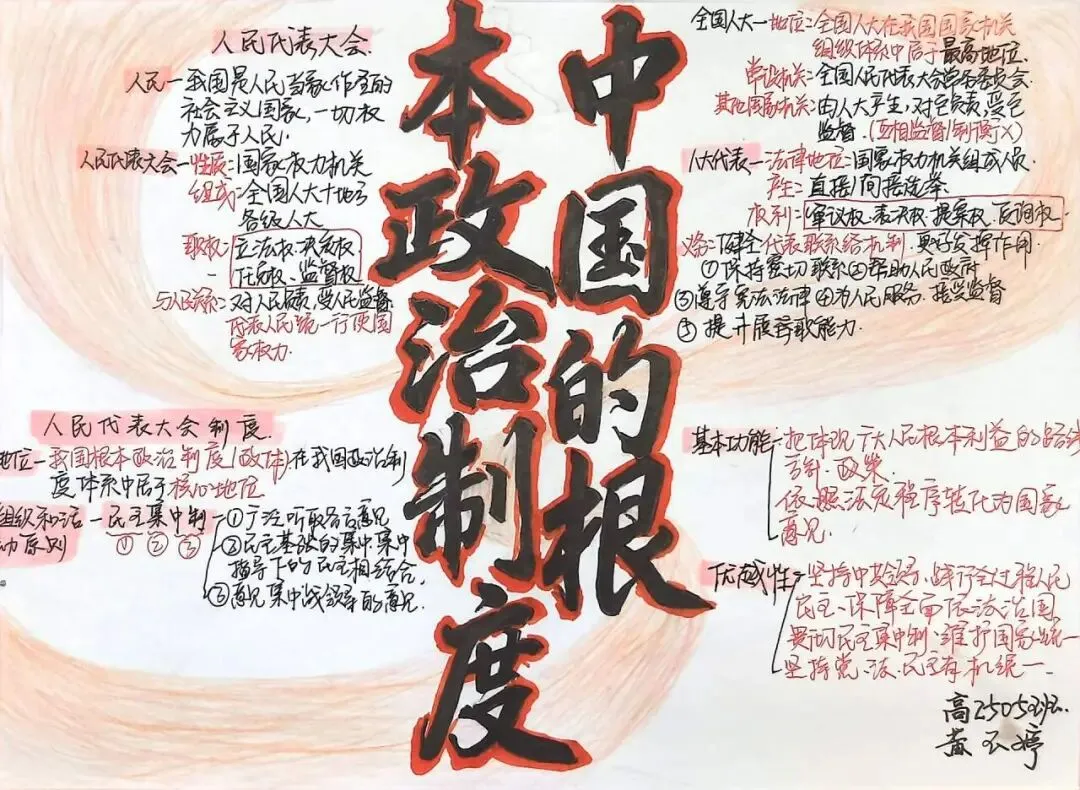 中国的根
本政治制度
人民代表大会
人民—我国是人民当家作主的
社会主义国家,一切权
力属于人民.
人民代表大会—性质:国家权力机关
组成:全国人大+地方
各级人大
职权:立法权、决定权
任免权、监督权
与人民关系:对人民负责,受人民监督
代表人民统一行使国
家权力.
人民代表大会制度
地位—我国根本政治制度(政体)在我国政治制
度体系中居于核心地位
组织和活—民主集中制—①广泛听取各方意见
动原则 ① ② ③ ②民主基础的集中,集中
指导下的民主相结合,
③意见集中 的意见.
全国人大—地位:全国人大在我国国家机关
组织体系中居于最高地位.
常设机关:全国人民代表大会常务委员会
其他国家机关:由人大产生,对它负责,受它
监督.(互相监督/制衡×)
人大代表—法律地位:国家权力机关组成人员.
产生:直接/间接选举
权利:审议权.表决权.提案权.质询权.
义务:健全代表联系 机制.更好发挥作用.
①保持密切联系②帮助人民政府
③遵守宪法法律④为人民服务.接受监督
⑤提升履行职能力.
基本功能—把体现广大人民根本利益的路线
方针.政策.
依照法定程序转化为国家
意见.
优越性—坚持中共领导、践行全过程人民
民主、保障全面依法治国
贯彻民主集中制.维护国家统一
坚持党、法、民主有机统一.
高2505班.
黄 婷